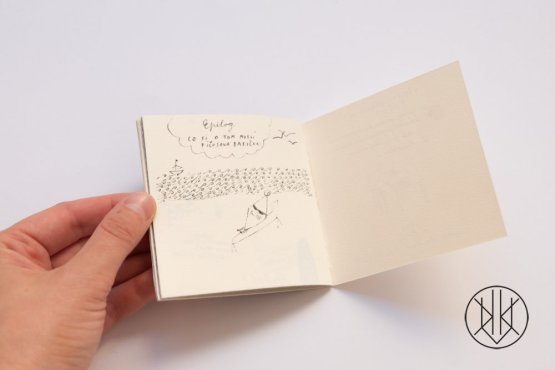 Epilog
CO SI O TOM MYSLÍ
FILOSOFA BABIČKA